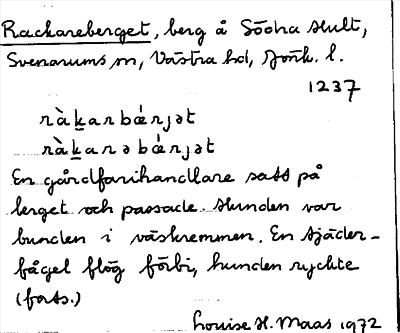 Rackareberget, berg å Södra Hult,
Svenarums sn, Västra hd, Jönk. l.
1237
ràkarbǽrjət
ràkarəbǽrjət
En gårdfarihandlare satt på
berget och passade. Hunden var
bunden i väskremmen. En tjäder-
fågel flög förbi, hunden ryckte
(forts.)
Louise H. Maas 1972